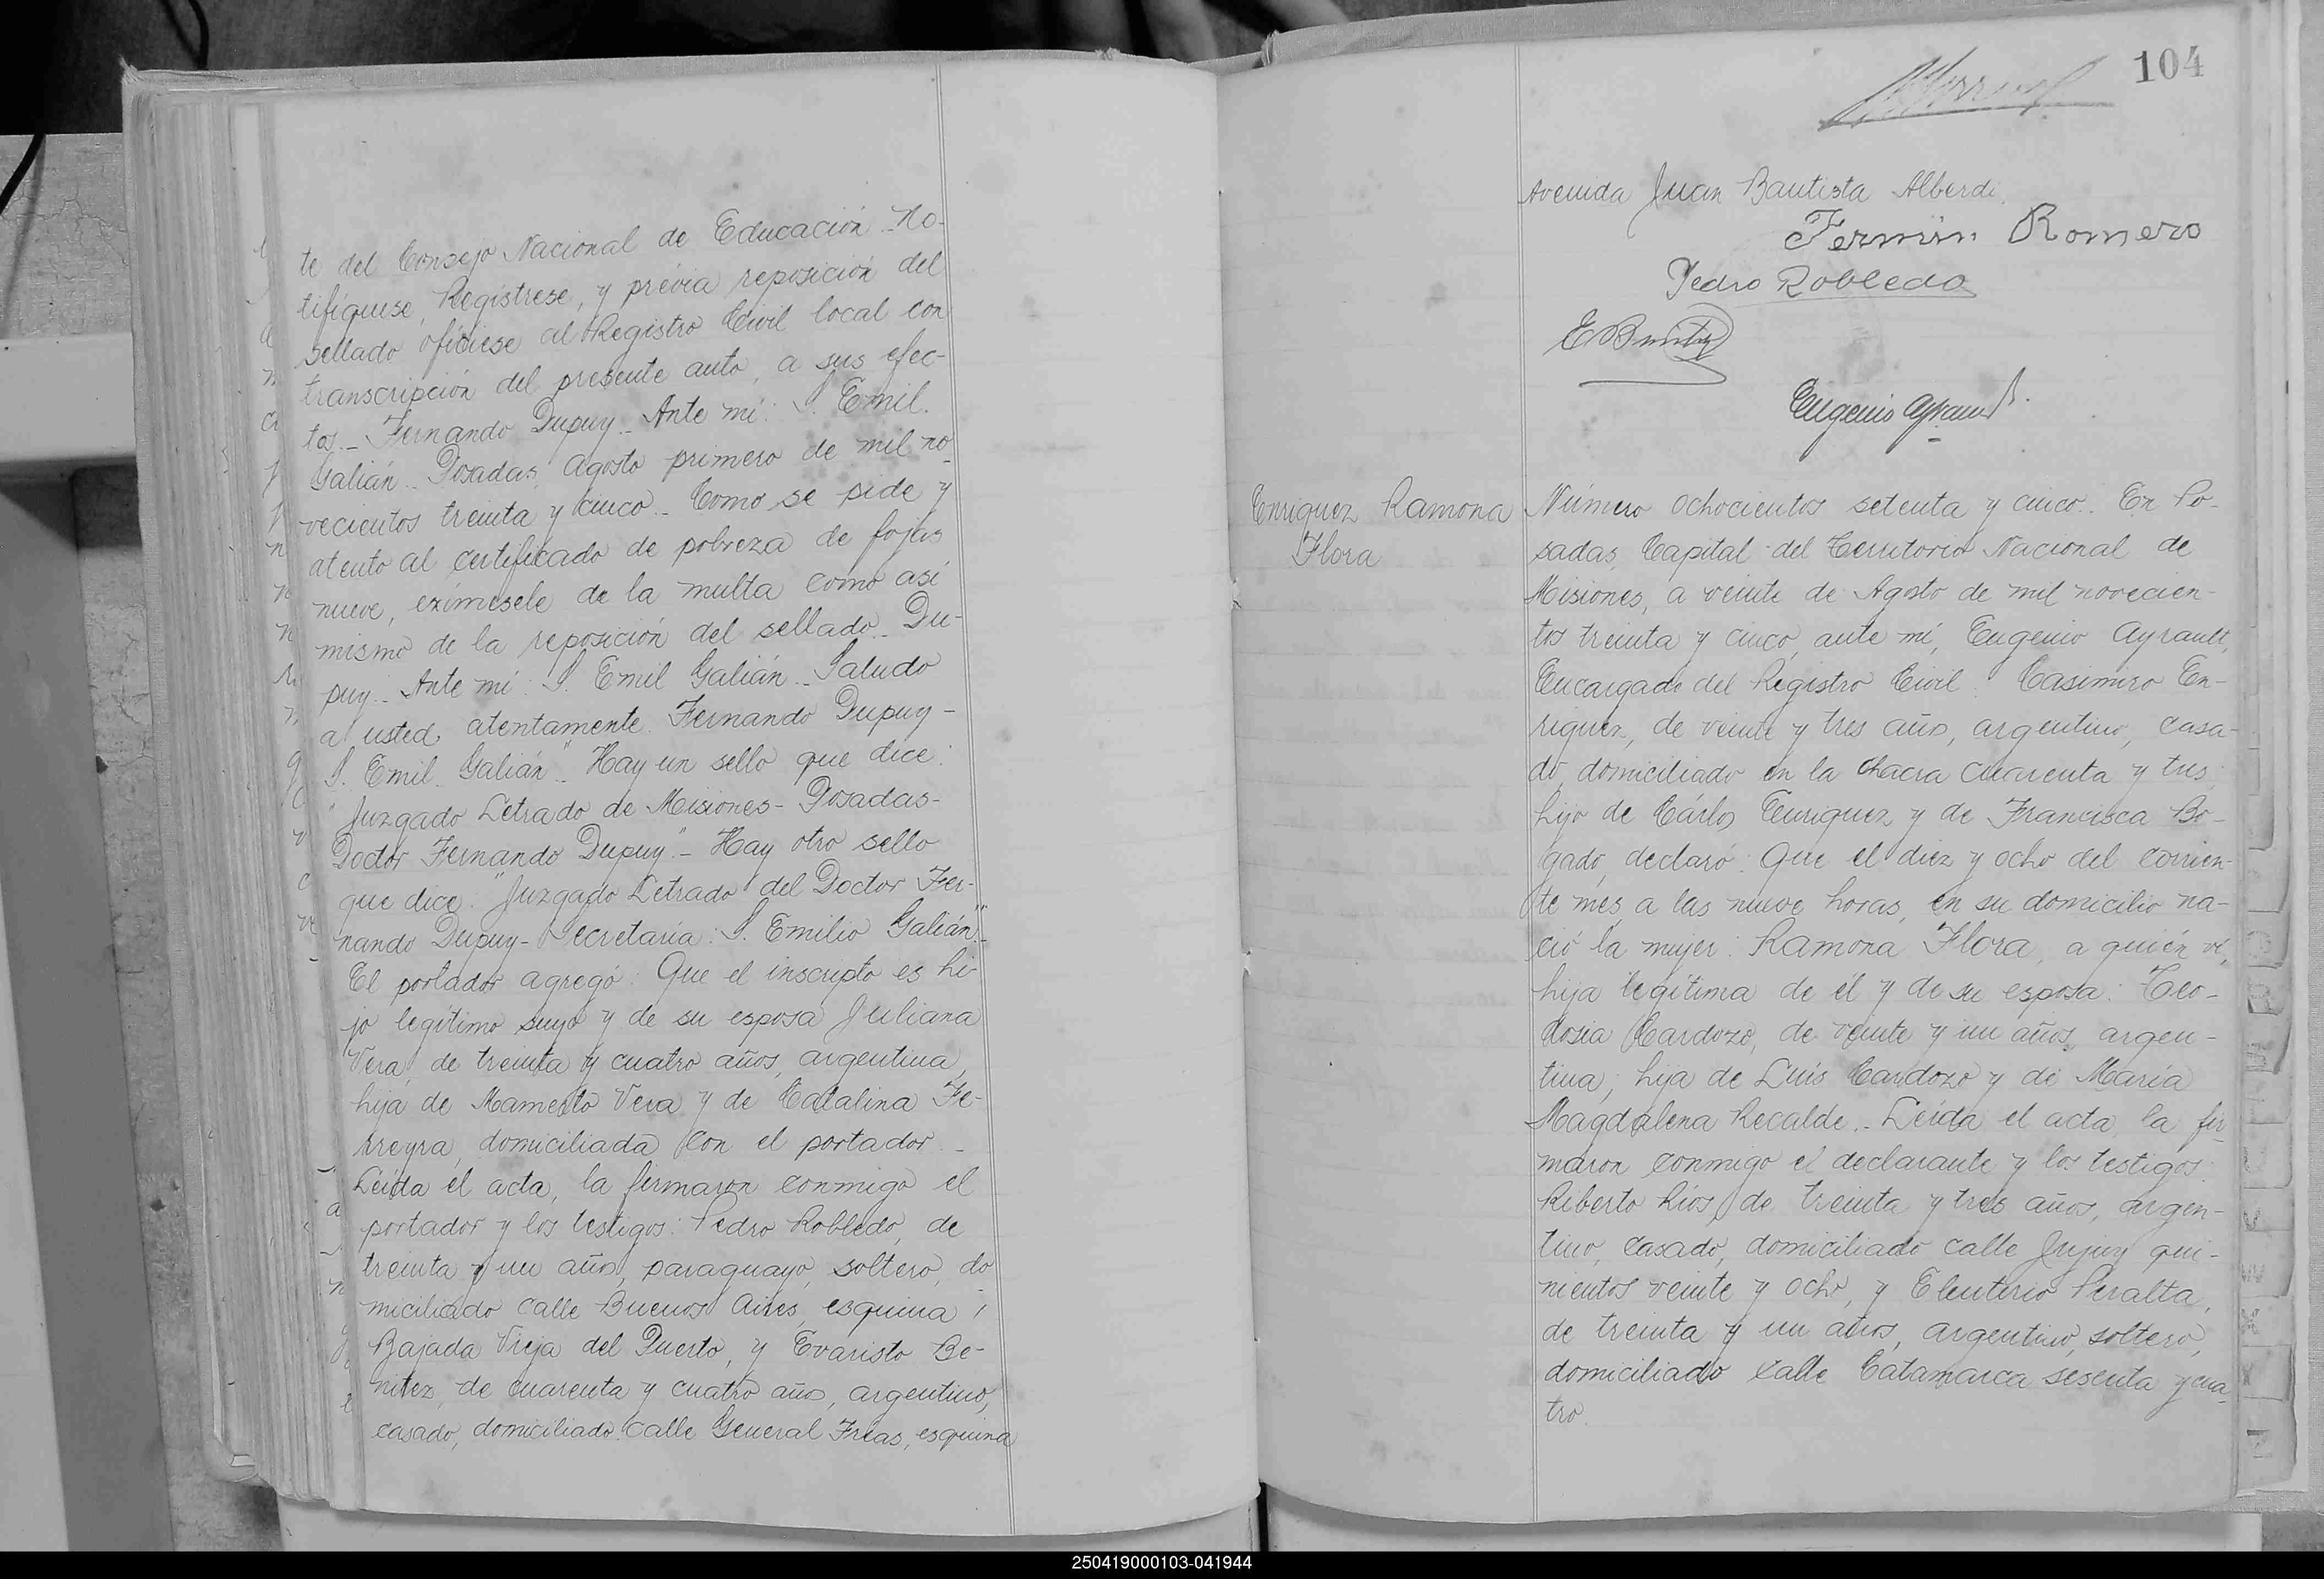 te del Consejo Nacional de Educación. No-
tifíquese, Regístrese, y prévia reposición del
sellado ofíciese al Registro Civil local con
transcripción del presente auto, a sus efec-
tos._ Fernando Dupuy._ Ante mí: S. Emil.
Galián._ Posadas, Agosto primero de mil no_
vecientos treinta y cinco._ Como se pide y
atento al certificado de pobreza de fojas
nueve, exímesele de la multa como así
mismo de la reposición del sellado._ Du-
puy._ Ante mí: S. Emil Galián._ Saludo
a usted atentamente. Fernando Dupuy-
S. Emil. Galián"._ Hay un sello que dice:
"Juzgado Letrado de Misiones- Posadas-
Doctor Fernando Dupuy"._ Hay otro sello
que dice: "Juzgado Letrado del Doctor Fer-
nando Dupuy- Secretaría: S. Emilio Galián"._
El portador agregó: Que el inscripto es hi-
jo legítimo suyo y de su esposa Juliana
Vera, de treinta y cuatro años, argentina,
hija de Mamerto Vera y de Catalina Fe-
rreyra, domiciliada con el portador._
Leída el acta, la firmaron conmigo el
portador y los testigos: Pedro Robledo, de
treinta y un años, paraguayo, soltero, do
miciliado calle Buenos Aires, esquina
Bajada Vieja del Puerto, y Evaristo Be-
nitez, de cuarenta y cuatro años, argentino,
casado, domiciliado calle General Frías, esquina
104
Avenida Juan Bautista Alberdi.
Fermín Romero
Pedro Robledo
E Benitez
Eugenio Ayrault.
Enriquez Ramona
Flora
Número ochocientos setenta y cinco._ En Po-
sadas, Capital del Territorio Nacional de
Misiones, a veinte de Agosto de mil novecien-
tos treinta y cinco, ante mí, Eugenio Ayrault,
Encargado del Registro Civil: Casimiro En-
riquez, de veinte y tres años, argentino, casa-
do, domiciliado en la chacra cuarenta y tres;
hijo de Cárlos Enriquez y de Francisca Bo-
gado, declaró: Que el diez y ocho del corrien-
te mes, a las nueve horas, en su domicilio na-
ció la mujer: Ramona Flora, a quién ví,
hija legítima de él y de su esposa: Teo-
dosia Cardozo, de veinte y un años, argen-
tina, hija de Luis Cardozo y de María
Magdalena Recalde._ Leída el acta, la fir-
maron conmigo el declarante y los testigos:
Riberto Ríos, de treinta y tres años, argen-
tino, casado, domiciliado calle Jujuy qui-
nientos veinte y ocho, y Eleuterio Peralta,
de treinta y un años, argentino, soltero,
domiciliado calle Catamarca sesenta y cua-
tro.
250419000103-041944